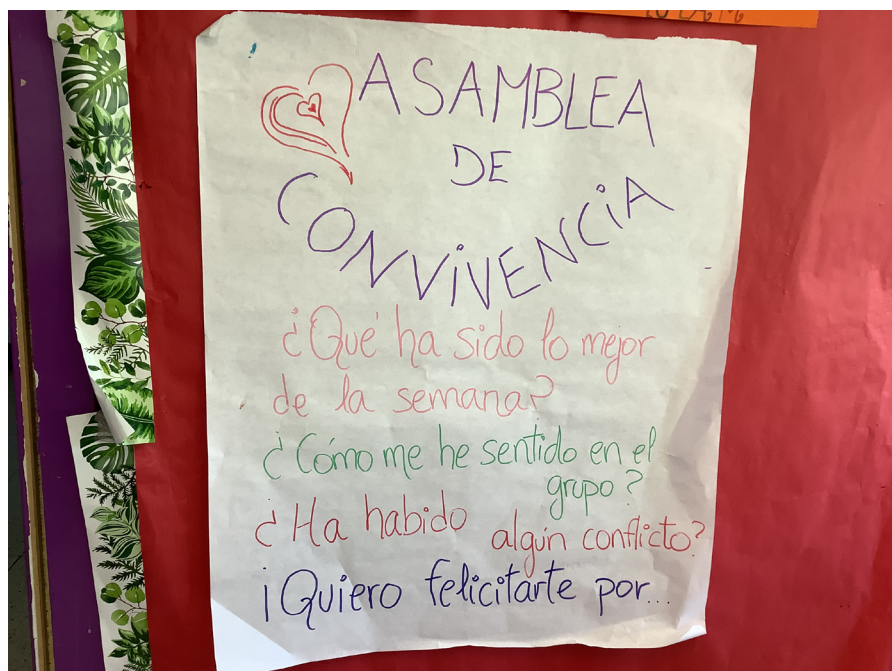 ASAMBLEA
DE
CONVIVENCIA
¿Qué ha sido lo mejor
de la semana?
¿Cómo me he sentido en el
grupo?
¿Ha habido algún conflicto?
¡Quiero felicitarte por...